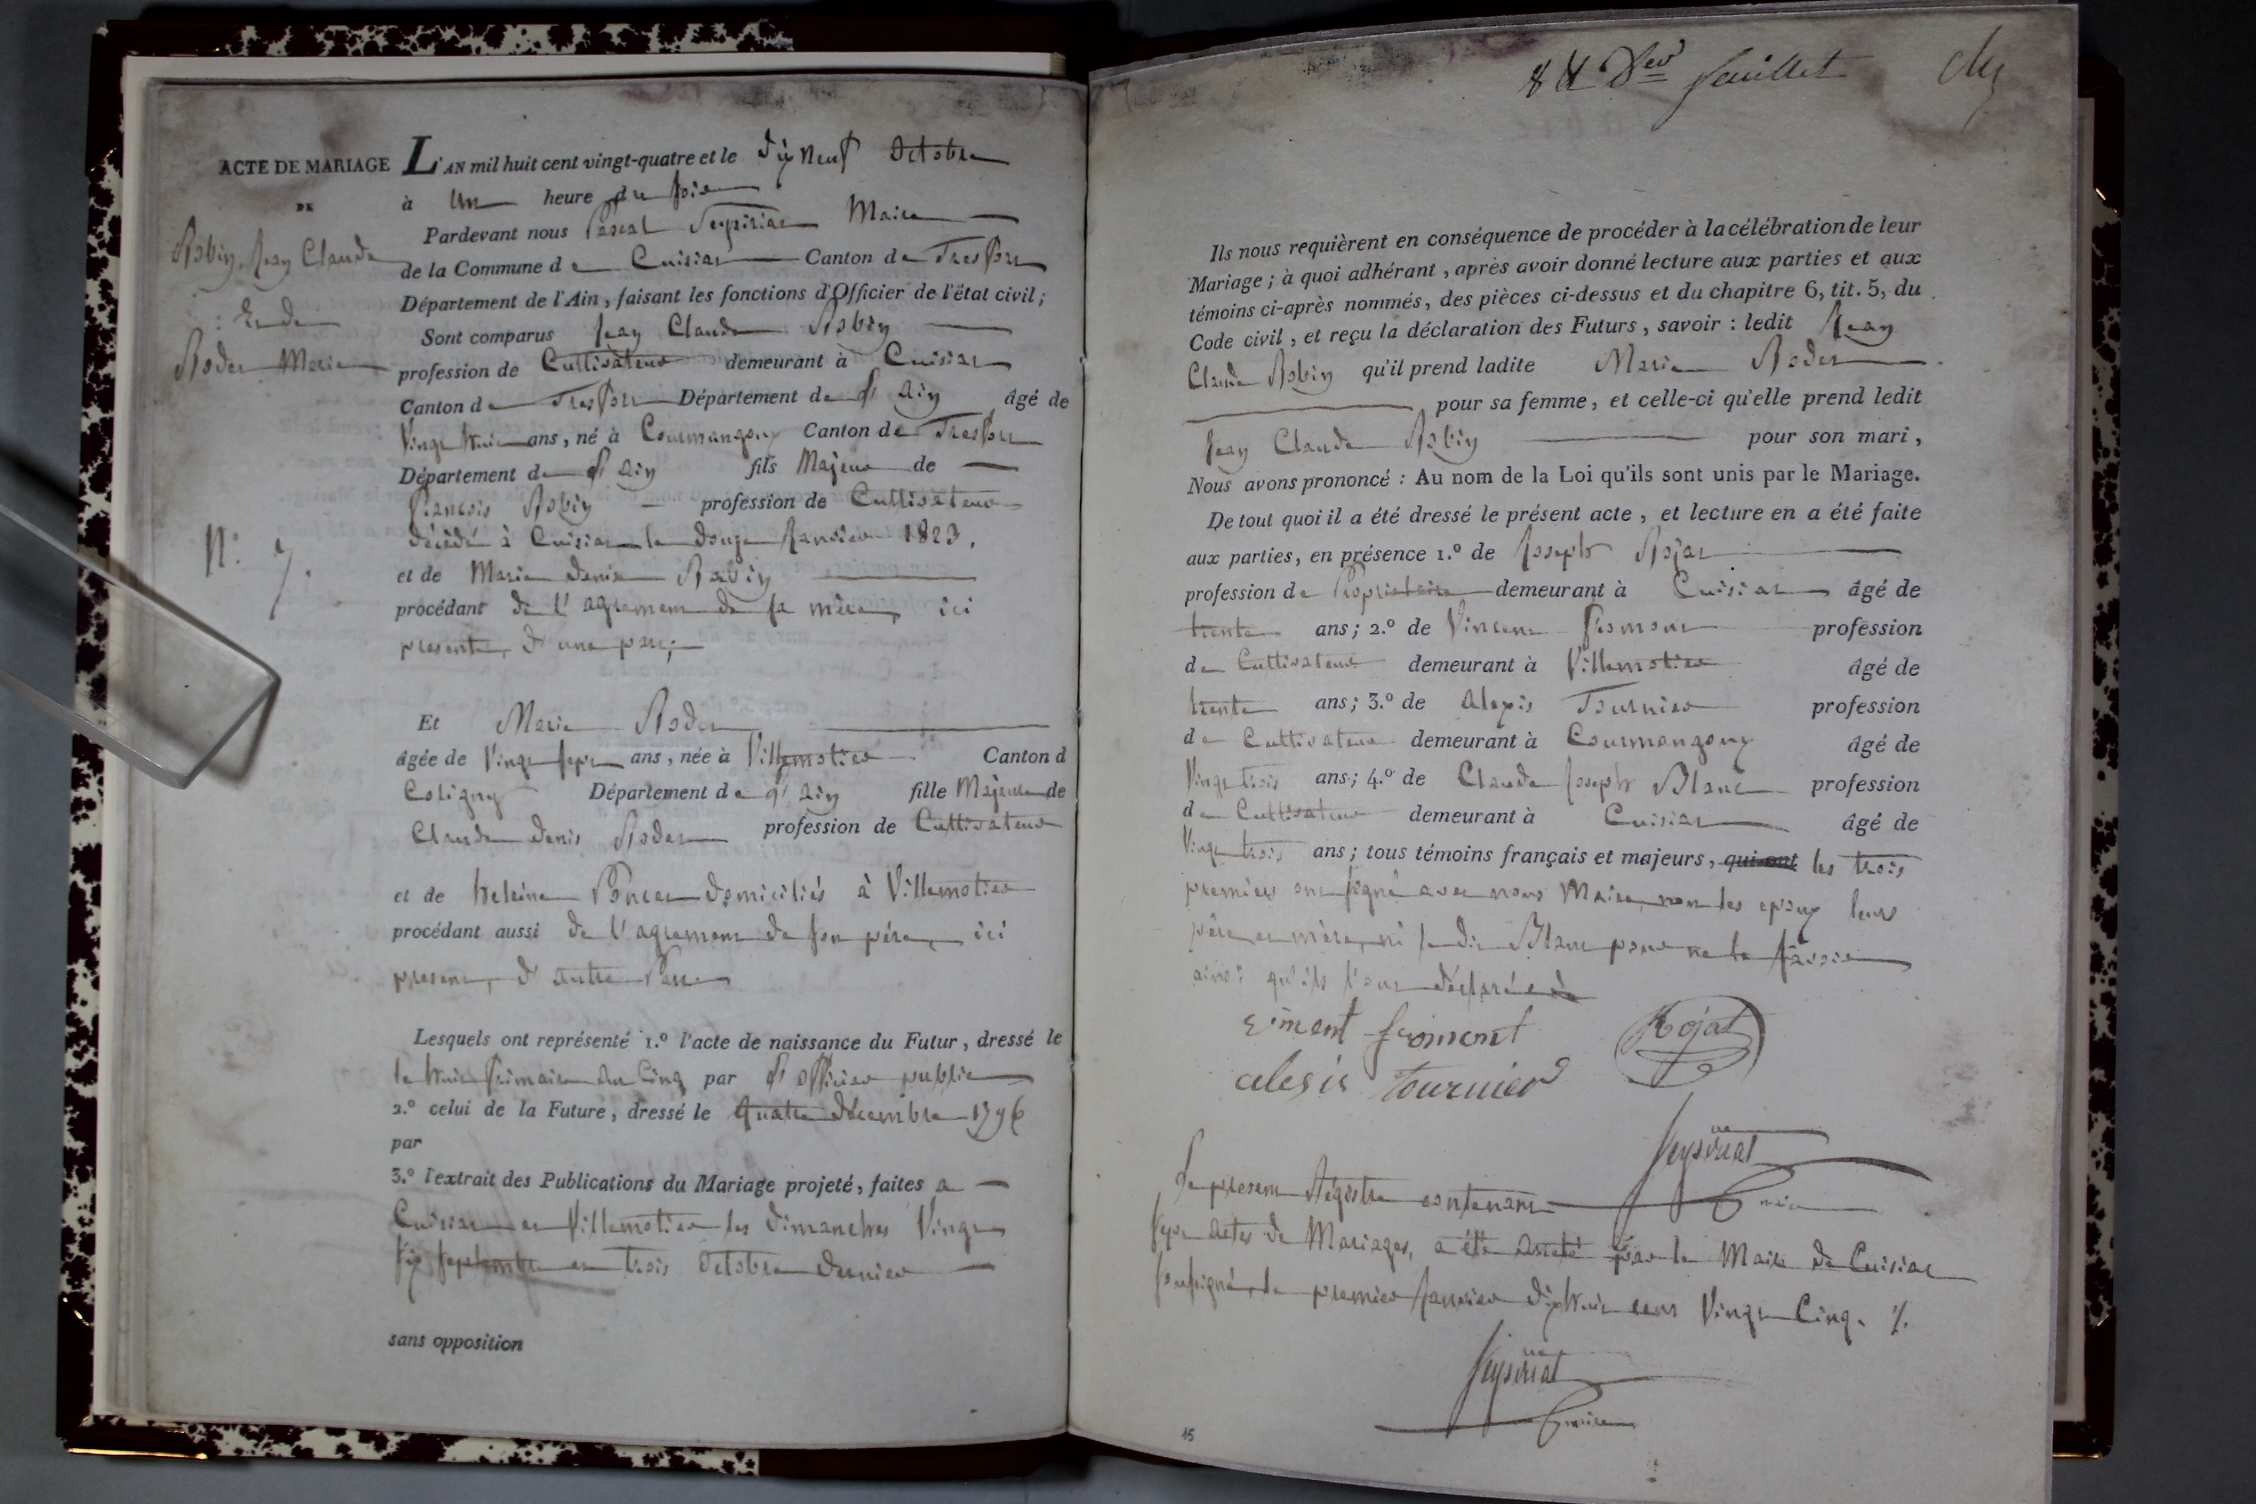 ACTE DE MARIAGE
DE
Robin, Jean Claude
Et de
Rodet Marie
N.° 7.
L'AN mil huit cent vingt-quatre et le dix neuf Octobre
à Un heure du soir
Pardevant nous Pascal Seyssiriat Maire
de la Commune de Cuisiat Canton de Treffort
Département de l'Ain, faisant les fonctions d'Officier de l'état civil;
Sont comparus Jean Claude Robin
profession de Cultivateur demeurant à Cuisiat
Canton de Treffort Département de l'Ain âgé de
Vingt huit ans, né à Courmangoux Canton de Treffort
Département de l'Ain fils Majeur de
François Robin profession de Cultivateur
décédé à Cuisiat le douze Janvier 1823,
et de Marie denise Robin
procédant de l'agrement de sa mère, ici
presente, d'une part;
Et Marie Rodet
âgée de Vingt sept ans, née à Villemotier Canton d
Coligny Département de l'Ain fille Majeure de
Claude denis Rodet profession de Cultivateur
et de heleine Poncet domiciliés à Villemotier
procédant aussi de l'agrement de son père, ici
present, d'autre Part
Lesquels ont représenté 1.° l'acte de naissance du Futur, dressé le
le huit frimaire an Cinq par l'officier public
2.° celui de la Future, dressé le quatre décembre 1796
par
3.° l'extrait des Publications du Mariage projeté, faites a
Cuisiat et Villemotier les dimanches Vingt
six septembre et trois Octobre dernier
sans opposition
8 & Der feuillet
Ils nous requièrent en conséquence de procéder à la célébration de leur
Mariage; à quoi adhérant, après avoir donné lecture aux parties et aux
témoins ci-après nommés, des pièces ci-dessus et du chapitre 6, tit. 5, du
Code civil, et reçu la déclaration des Futurs, savoir: ledit Jean
Claude Robin qu'il prend ladite Marie Rodet
pour sa femme, et celle-ci qu'elle prend ledit
Jean Claude Robin pour son mari,
Nous avons prononcé: Au nom de la Loi qu'ils sont unis par le Mariage.
De tout quoi il a été dressé le présent acte, et lecture en a été faite
aux parties, en présence 1.° de Joseph Rojat
profession de Proprietaire demeurant à Cuisiat âgé de
trente ans; 2.° de Vincent fromont profession
de Cultivateur demeurant à Villemotier âgé de
trente ans; 3.° de alexis Tournier profession
de Cultivateur demeurant à Courmangoux âgé de
Vingt trois ans; 4.° de Claude Joseph Blanc profession
de Cultivateur demeurant à Cuisiat âgé de
Vingt trois ans; tous témoins français et majeurs, qui ont les trois
premiers ont signé avec nous Maire, non les epoux leurs
père et mère, ni le dit Blanc pour ne le savoir
ainsi qu'ils l'ont déclaré
fromont Rojat
alesis tournier
Seyssiriat
maire
Le present Régistre contenant
sept actes de Mariages, a été Arreté par le Maire de Cuisiat
soussigné, le premier Janvier dix huit cent Vingt Cinq.
Seyssiriat
maire
15